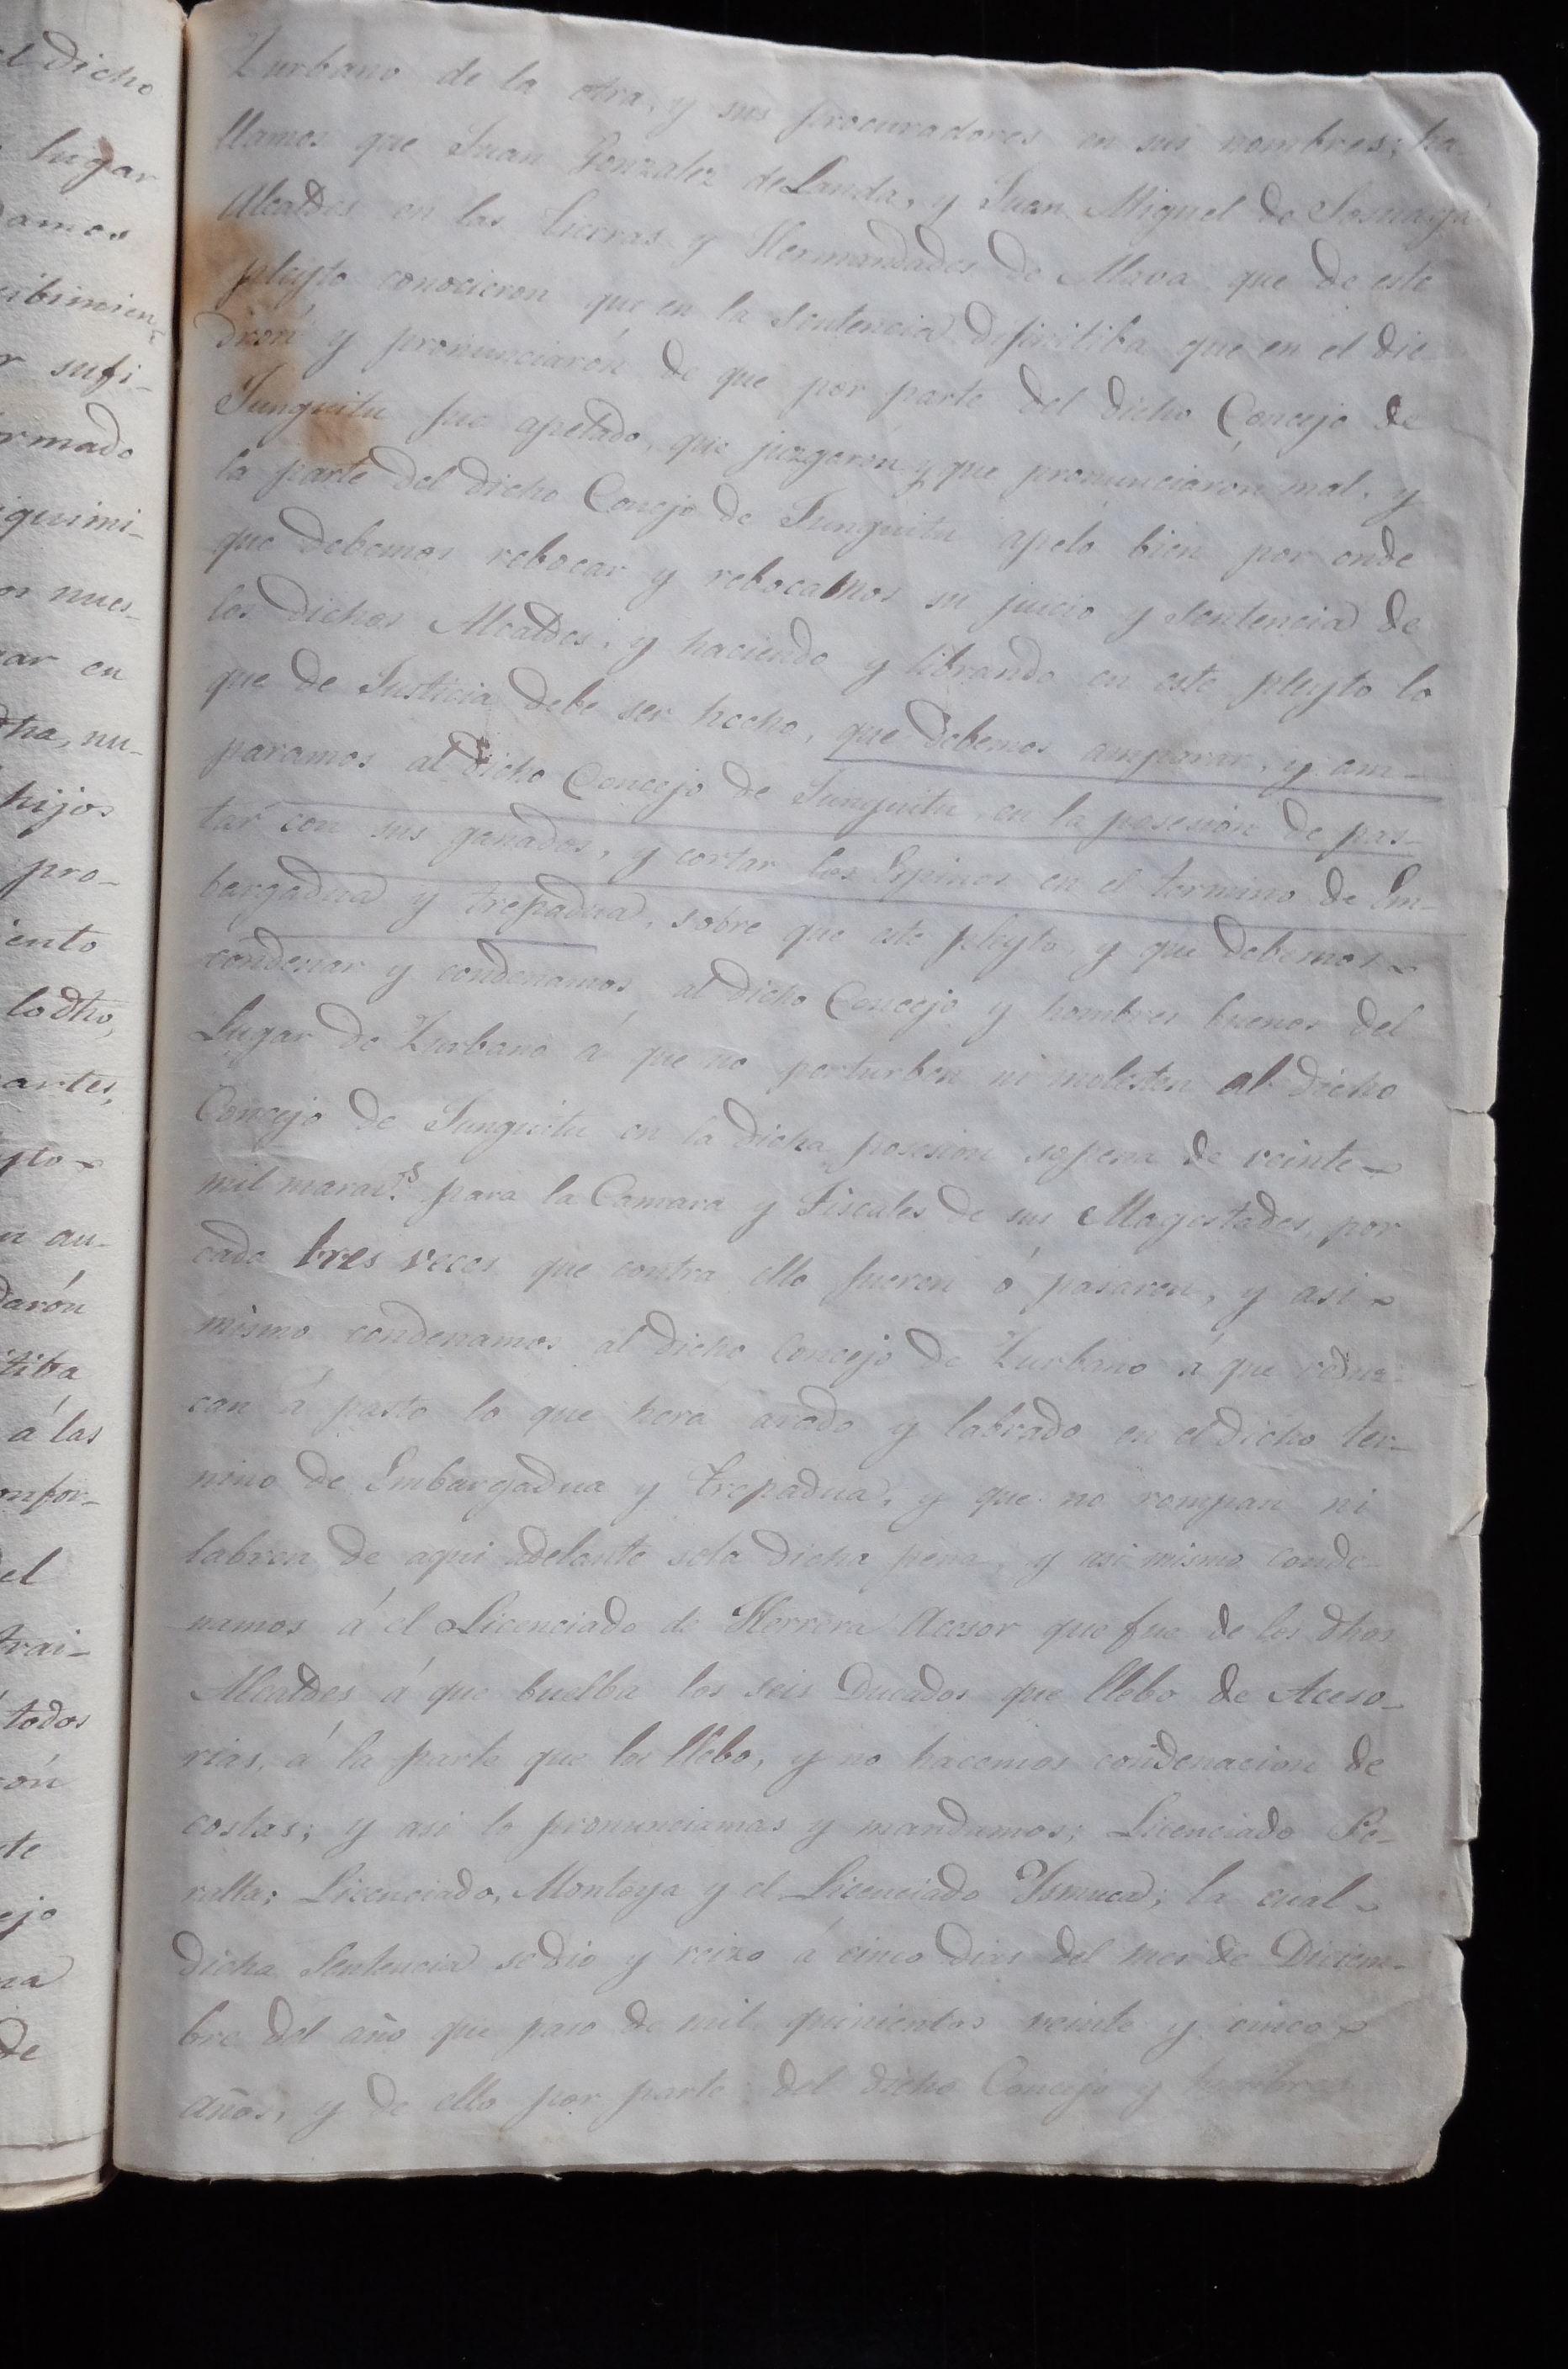 Zurbano de la otra, y sus procuradores en sus nombres; ha-
llamos que Juan Gonzalez de Landa, y Juan Miguel de
Alcaldes en las tierras y Hermandades de Alava que de este
pleyto conocieron que en la sentencia difinitiba que en él die-
drón y pronunciarón de que por parte del dicho Concejo de
Junguitu fue apelado, que juzgarón y que pronunciarón mal, y
la parte del dicho Concejo de Junguitu apeló bien por onde
que debemos rebocar y rebocamos su juicio y sentencia de
los dichos Alcaldes, y haciendo y librando en este pleyto lo
que de Justicia debe ser hecho, que debemos amparar, y am-
paramos al dicho Concejo de Junguitu en la posesion de pas-
tar con sus ganados, y cortar los Espinos en el termino de Em-
bargadua y trepadua, sobre que este pleyto, y que debemos
condenar y condenamos al dicho Concejo y hombres buenos del
Lugar de Zurbano á que no perturben ni molesten al dicho
Concejo de Junguitu en la dicha posesion sopena de veinte
mil marav.s para la Camara y Fiscales de sus Magestades, por
cada tres veces que contra ello fueren ó pasaren, y asi
mismo condenamos al dicho Concejo de Zurbano á que reduz-
can á pasto lo que hera arado y labrado en el dicho ter-
mino de Embargadua y trepadua, y que no rompan ni
labren de aqui adelante sola dicha pena, y asi mismo conde-
namos á el Licenciado de Herrera Acesor que fue de los dhos
Alcaldes á que buelba los seis Ducados que llebo de Aceso-
rias, á la parte que los llebo, y no hacemos condenacion de
costas; y asi lo pronunciamos y mandamos; Licenciado Pe-
ralta; Licenciado, Montoya y el Licenciado; la cual
dicha Sentencia se dio y rezo á cinco dias del mes de Diciem-
bre del año que paso de mil quinientos veinte y cinco
años, y de ello por parte del dicho Concejo y hombres